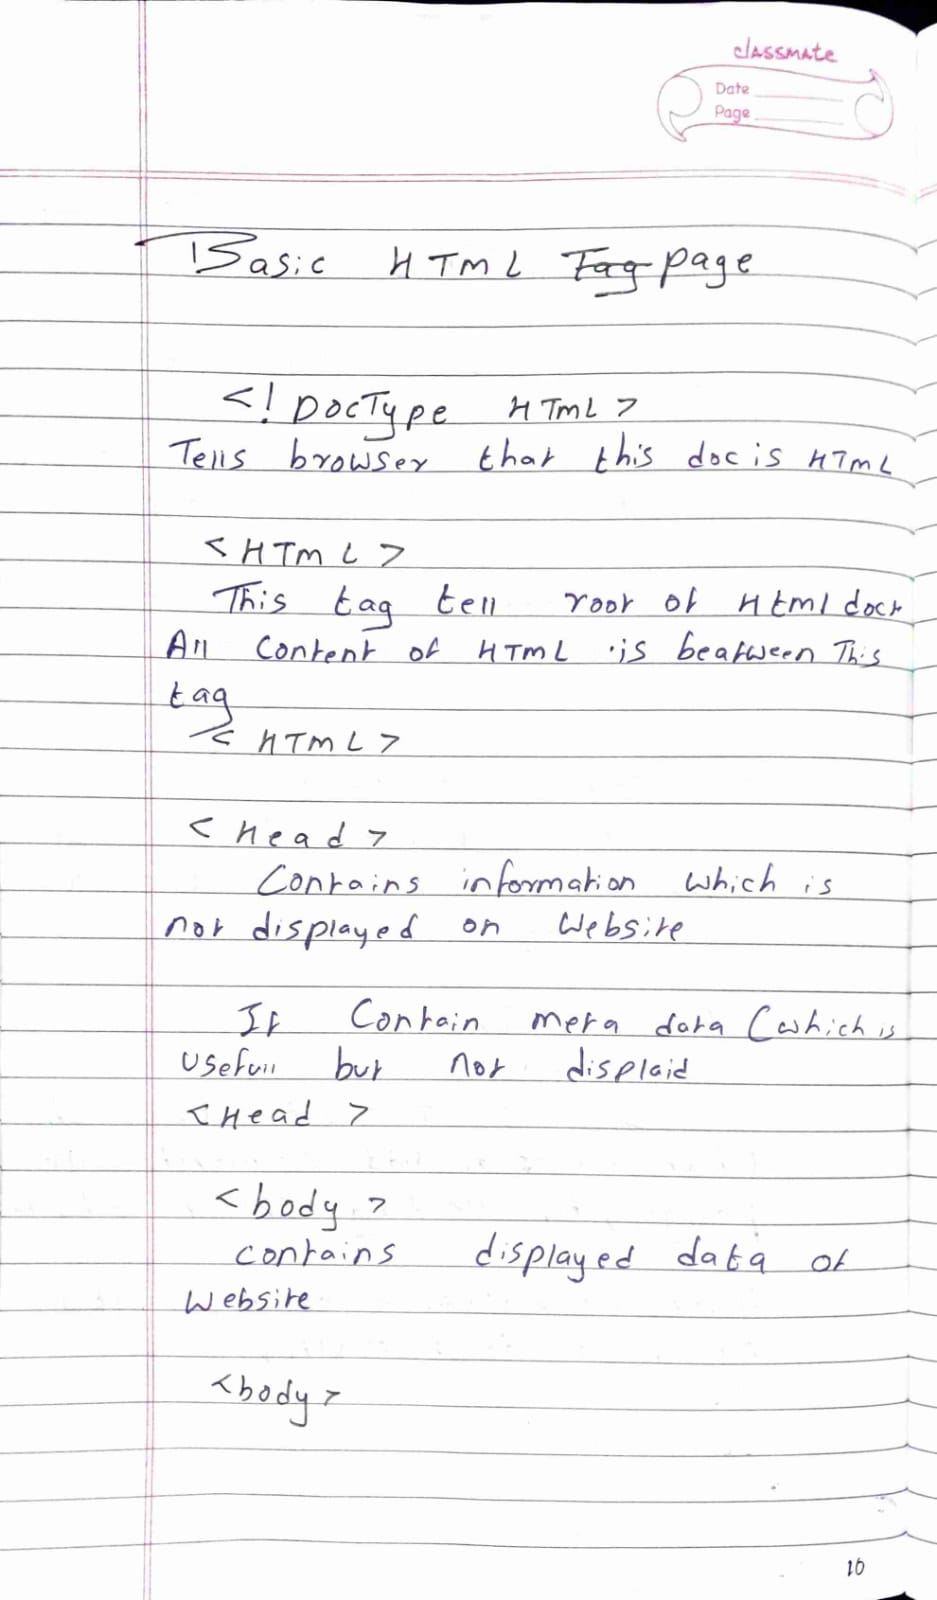 classmate
Date
Page
Basic HTML Tag page
<! DocType HTML>
Tells browser that this doc is HTML
<HTML>
This tag tell root of Html doct
All content of HTML is beatween This
tag
< HTML>
< Head >
Contains information which is
not displayed on Website
It Contain meta data (which is
Usefull but not displaid
<Head >
<body >
contains displayed data of
Website
<body>
10